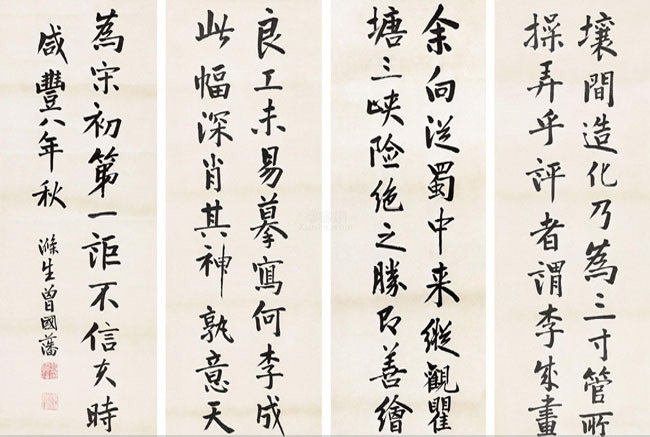 壤間造化乃為三寸管所
操弄乎評者謂李成畫
余向從蜀中来縱觀瞿
塘三峽险绝之勝即善繪
良工未易摹寫何李成
此幅深肖其神孰意天
為宋初第一詎不信夫時
咸豐八年秋
滌生曾國藩